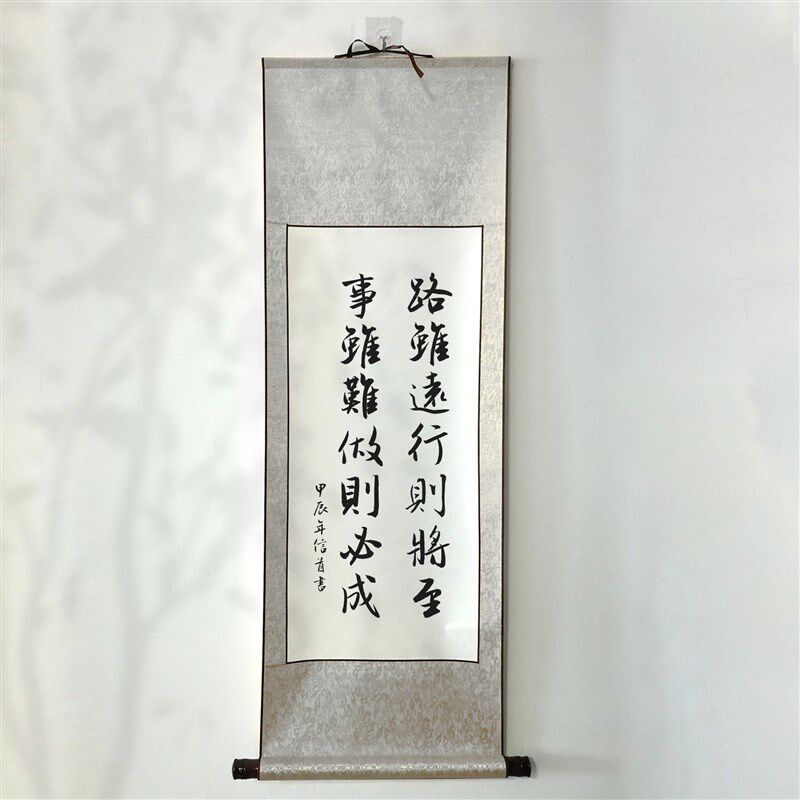 路雖遠行則將至
事雖難做則必成
甲辰年信首書